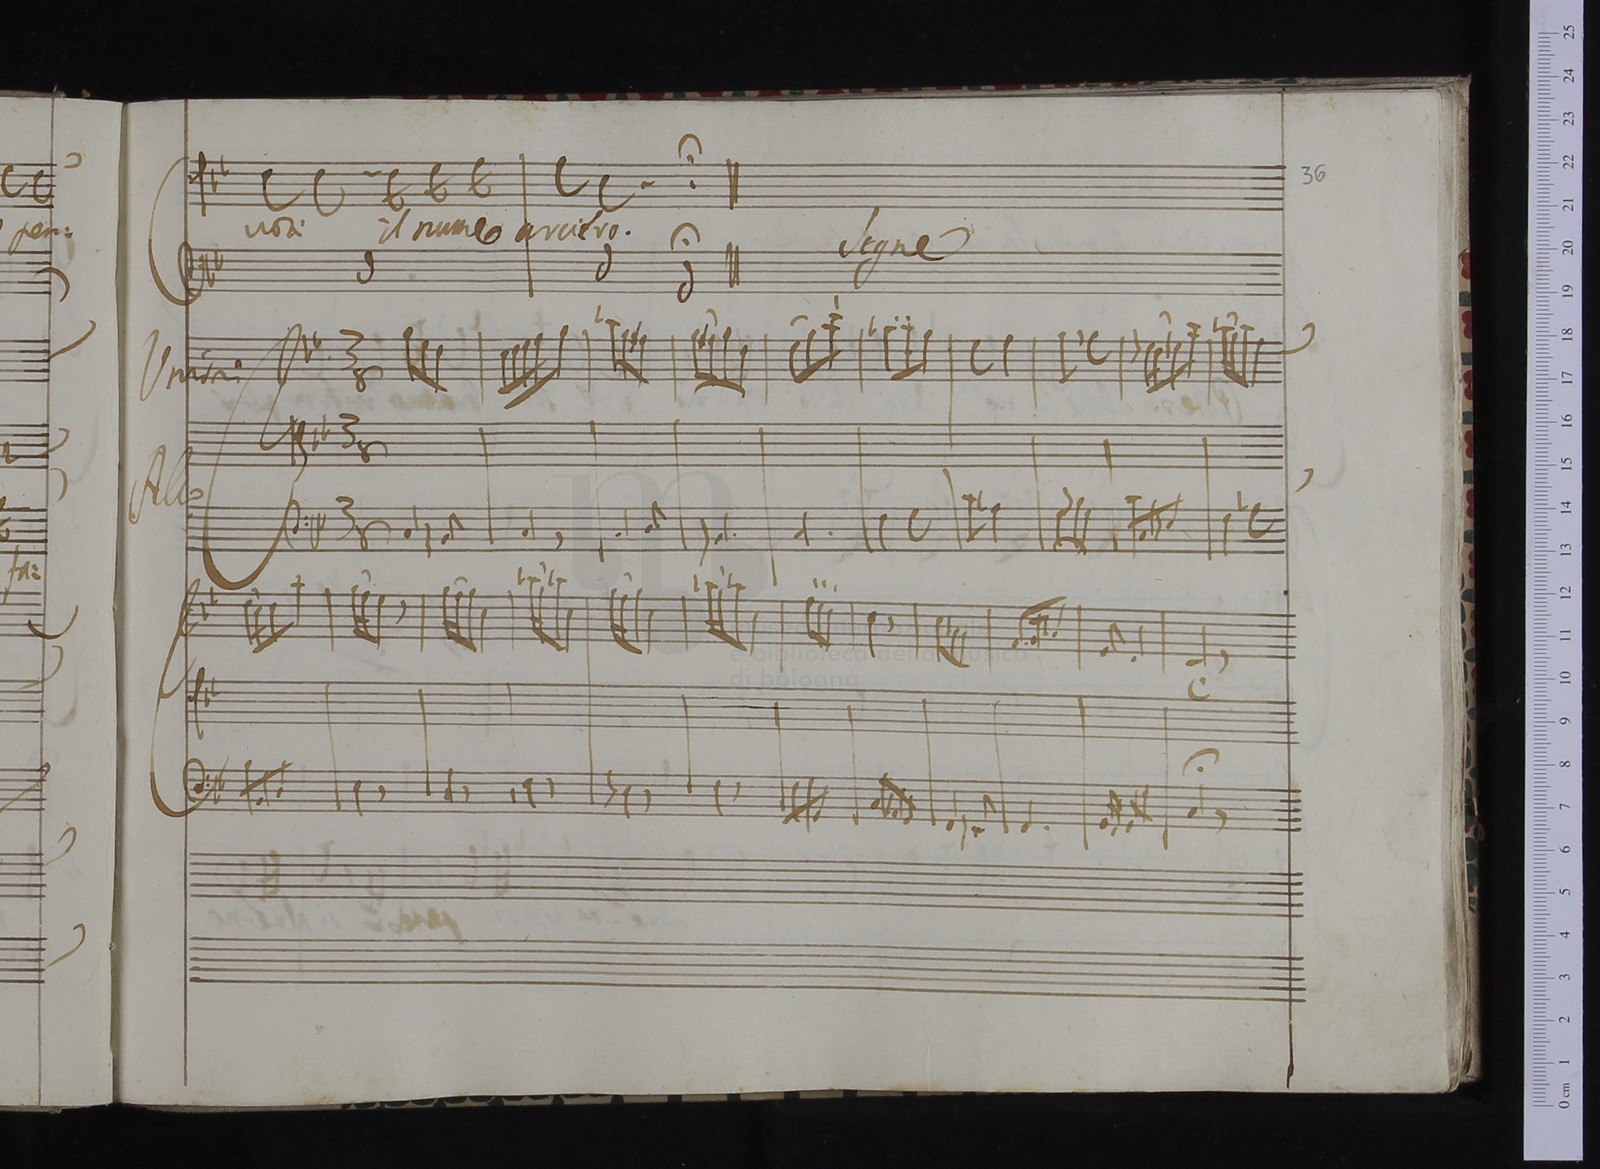 36
pen:
il nume arciero.
Segue
Unisni
Allo
museo internazionale
e biblioteca della musica
di bologna
25
24
23
22
21
20
19
18
17
16
15
14
13
12
11
10
9
8
7
6
5
4
3
2
1
0 cm